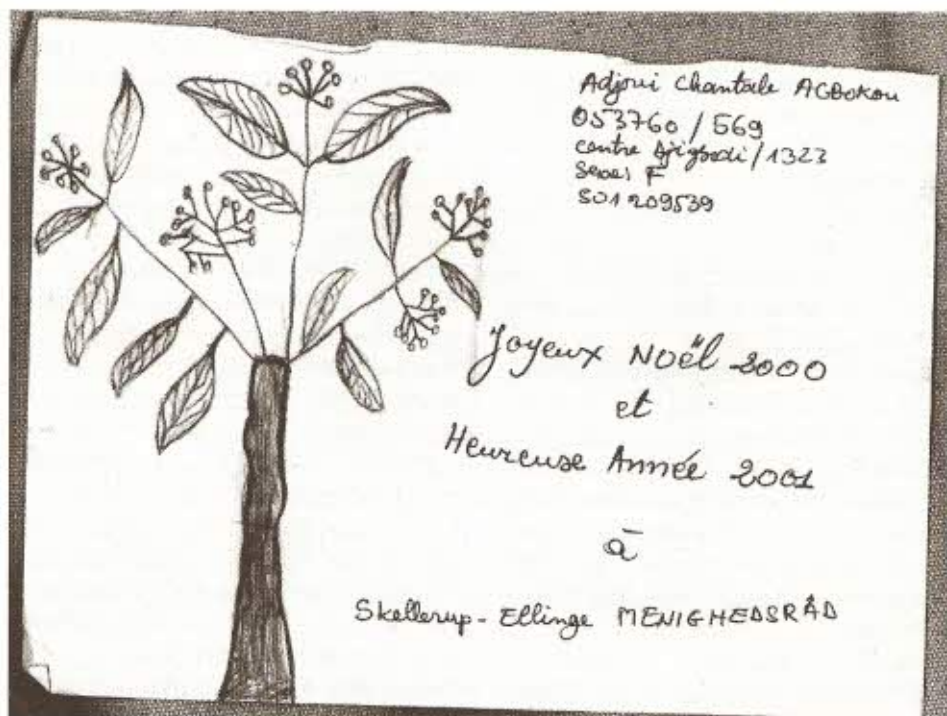 Adjoui Chantale AGBOKOU
053760 / 569
centre Djigbodi / 1323
Sexes F
S01209539
Joyeux Noël 2000
et
Heureuse Année 2001
à
Skellerup - Ellinge MENIGHEDSRÅD